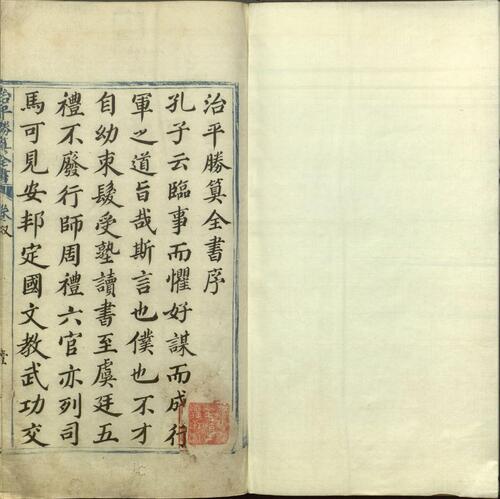 治平勝算全書序
孔子云臨事而懼好謀而成行
軍之道旨哉斯言也僕也不才
自幼束髮受塾讀書至虞廷五
禮不廢行師周禮六官亦列司
馬可見安邦定國文教武功交
治平勝算全書